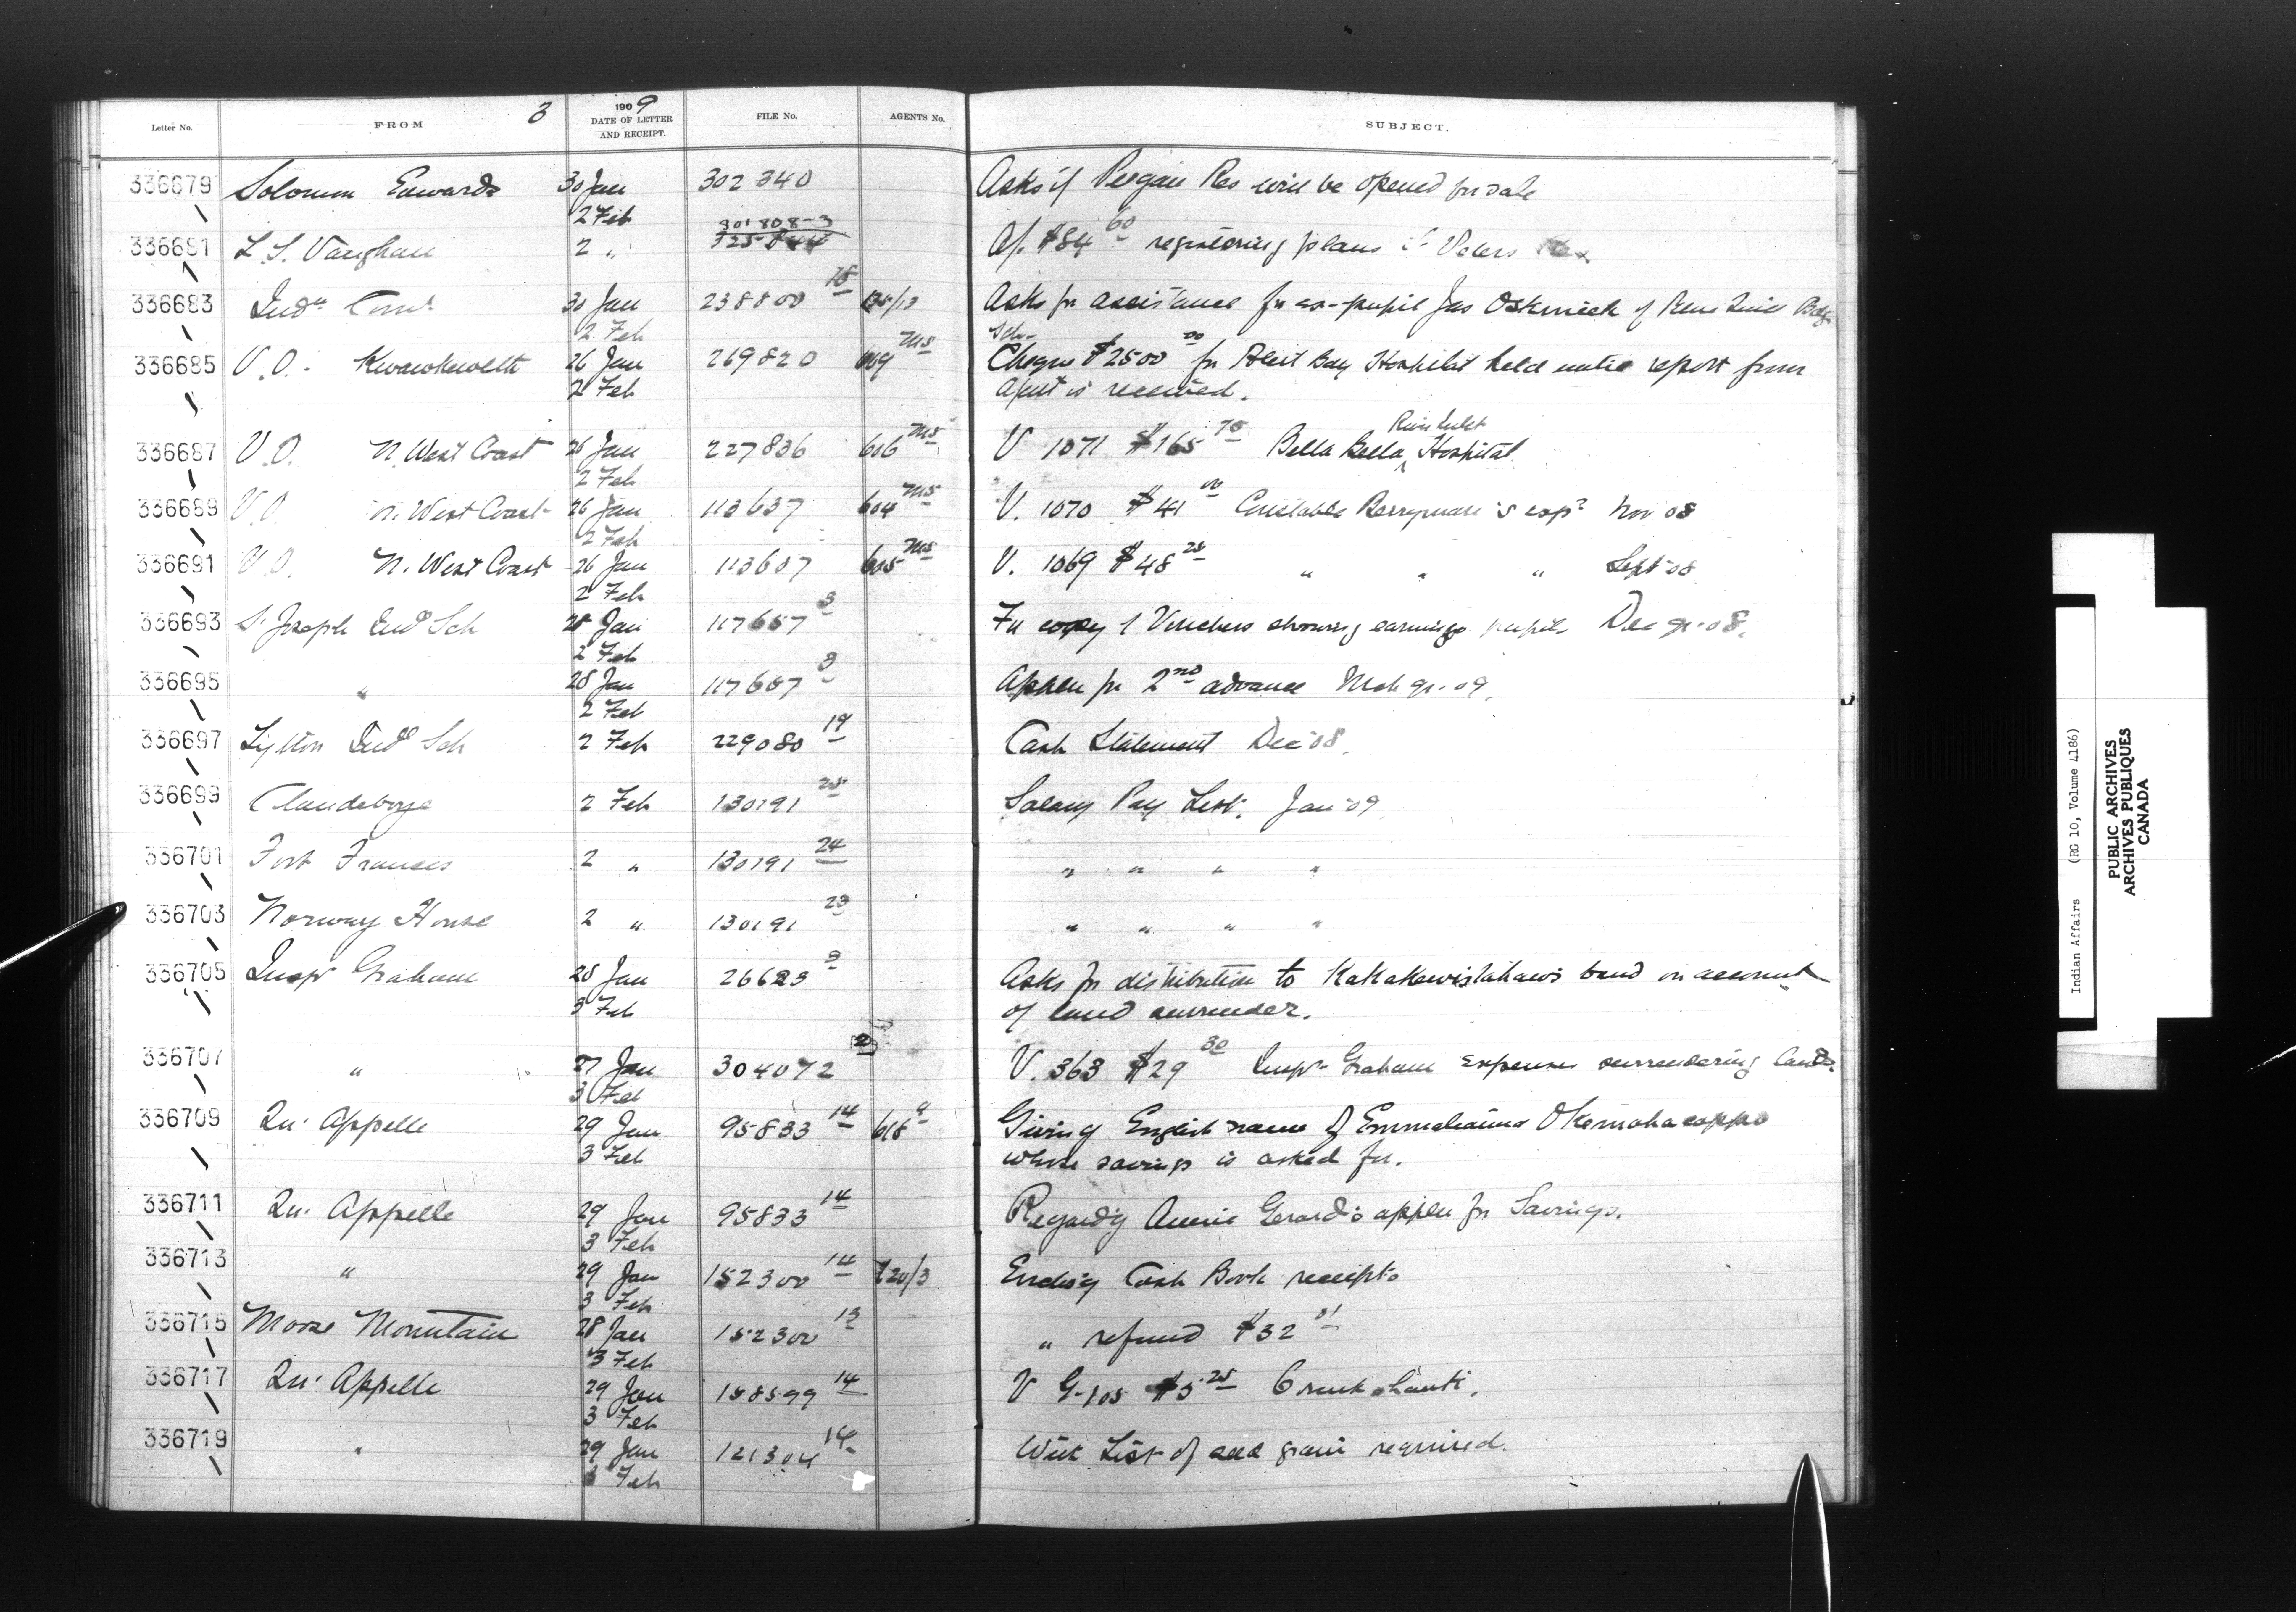 Letter No. FROM 3 1909 DATE OF LETTER AND RECEIPT. FILE No. AGENTS No. SUBJECT.
336679 Solomon Edwards 30 Jan 302340 Asks if Peigan Res will be opened for sale
2 Feb 301808-3
336681 L. S. Vaughan 2 " 325844 a/. $84 60 registering plans
336683 Indn Comr 30 Jan 238800 18 /13 Asks for assistance for ex-pupil Jas Oskineek of Bdg
2 Feb Sch.
336685 V.O. Kwawkewlth 26 Jan 269820 MS Cheque $2500 00 for Alert Bay Hospital held until report from
2 Feb Agent is received.
336687 V.O. N. West Coast 26 Jan 227836 606 MS V 1071 $165 75 Bella Bella Rivers Inlet Hospital
2 Feb
336689 V.O. N. West Coast 26 Jan 113637 604 MS V. 1070 $41 00 Constable Berryman's exps Nov 08
2 Feb
336691 V.O. N. West Coast 26 Jan 113637 605 MS V. 1069 $48 25 " " " Sept 08
2 Feb
336693 St Joseph Indl Sch 28 Jan 117657 3 copy of Vouchers showing earnings pupils Dec qr. 08.
2 Feb
336695 " 28 Jan 117657 3 Appln for 2nd advance Mch qr. 09.
2 Feb
336697 Lytton Indl Sch 2 Feb 229080 19 Cash Statement Dec 08.
336699 Clandeboye 2 Feb 130191 25 Salary Pay List. Jan 09
336701 Fort Frances 2 " 130191 24 " " " "
336703 Norway House 2 " 130191 23 " " " "
336705 Inspr Graham 28 Jan 26623 3 Asks for distribution to Kakakewistahaw's band on account
3 Feb of land surrender.
336707 " 27 Jan 304072 2 V. 363 $29 30 Inspr Graham expenses surrendering lands
3 Feb
336709 Qu' Appelle 29 Jan 95833 14 618 9 Giving English name of Okemahacappo
3 Feb whose savings is asked for.
336711 Qu' Appelle 29 Jan 95833 14 Regardg Annie Gerard's appln for Savings.
3 Feb
336713 " 29 Jan 152300 14 720/3 Enclos'g Cash Book receipts
3 Feb
336715 Moose Mountain 28 Jan 152300 13 " refund $32 01
3 Feb
336717 Qu' Appelle 29 Jan 158599 14 V G-105 $5 25
3 Feb
336719 " 29 Jan 121304 14 With List of seed grain required.
3 Feb
Indian Affairs (RG 10, Volume 4186)
PUBLIC ARCHIVES
ARCHIVES PUBLIQUES
CANADA